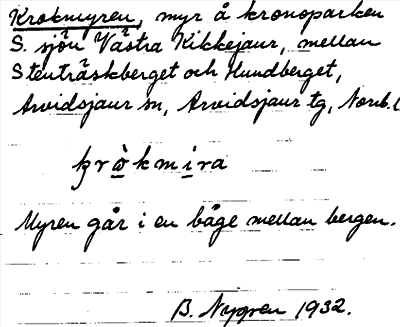 Krokmyren, myr å kronoparken
S. sjön Västra Kikkejaur, mellan
Stenträskberget och Hundberget,
Arvidsjaur sn, Arvidsjaur tg, Norrb. l
krò̠kmi̠ra
Myren går i en båge mellan bergen.
B. Nygren 1932.